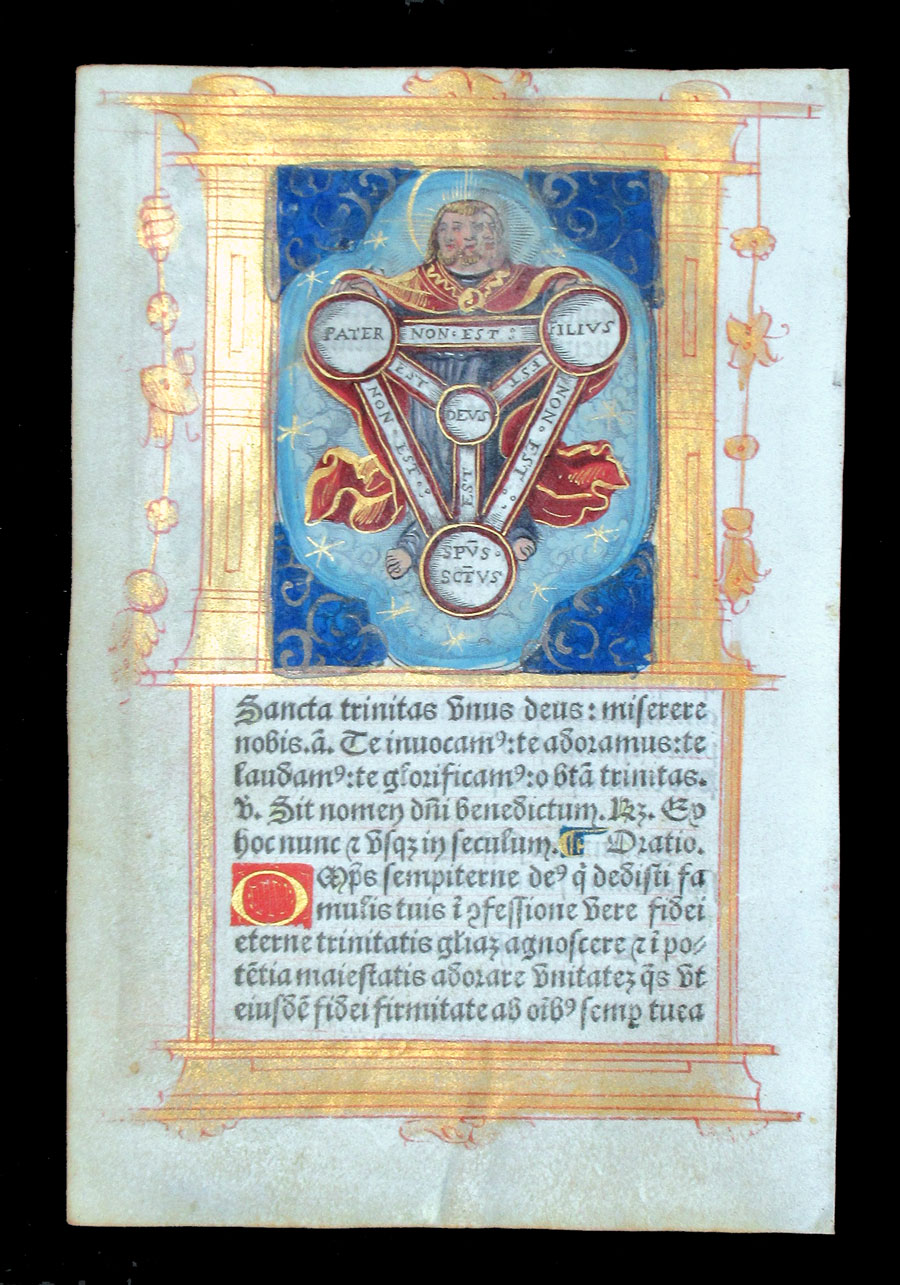 PATER NON EST FILIVS
EST EST
NON EST DEVS NON EST
EST
SPV̄S
SCT̄VS
Sancta trinitas vnus deus: miserere
nobis.ā. Te inuocamꝰ:te adoramus:te
laudamꝰ:te glorificamꝰ:o btā trinitas.
V̄. Sit nomen dn̄i benedictum.Rꝫ. Ex
hoc nunc ⁊ vsqꝫ in seculum. Oratio.
OMp̄s sempiterne deꝰ q̄ dedisti fa
mulis tuis ī ꝯfessione vere fidei
eterne trinitatis gl̄iaꝫ agnoscere ⁊ ī po⸗
tētia maiestatis adorare vnitateꝫ q̄s vt
eiusdē fidei firmitate ab oībꝰ semꝑ tuea